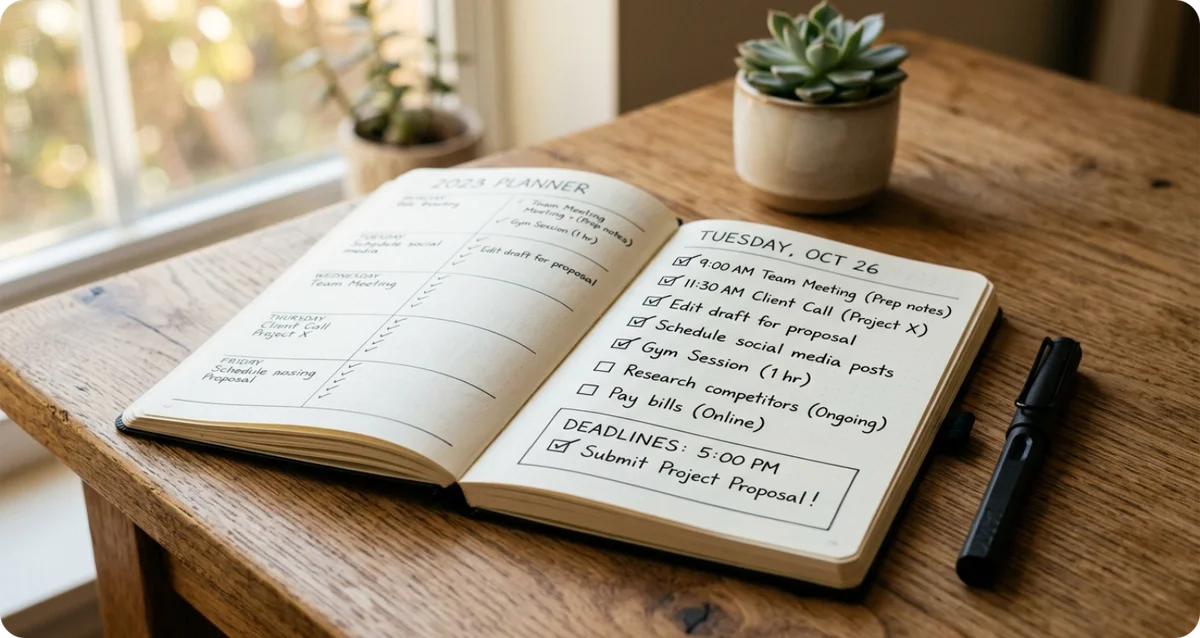 2023 PLANNER
TUESDAY
Schedule social
media
WEDNESDAY
Team Meeting
THURSDAY
Client Call
Project X
FRIDAY
Schedule
Proposal
✓ Team Meeting
Meeting - (Prep notes)
✓ Gym Session (1 hr)
✓ Edit draft for proposal
TUESDAY, OCT 26
☑ 9:00 AM Team Meeting (Prep notes)
☑ 11:30 AM Client Call (Project X)
☑ Edit draft for proposal
☑ Schedule social media posts
☑ Gym Session (1 hr)
☐ Research competitors (Ongoing)
☐ Pay bills (Online)
DEADLINES: 5:00 PM
☑ Submit Project Proposal!